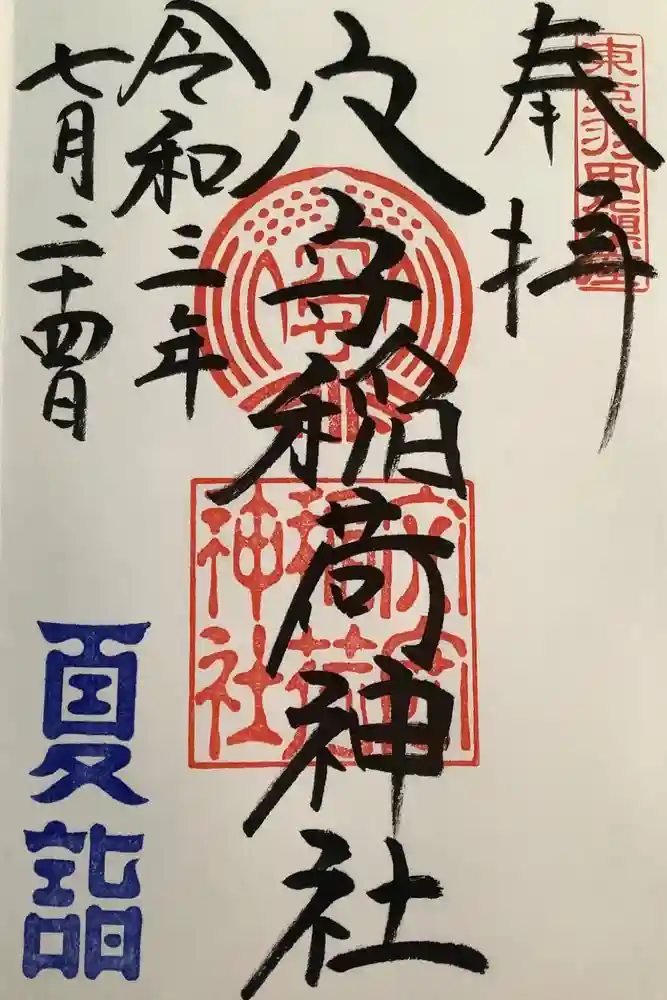 奉拝
東京羽田鎮座
穴守稲荷神社
穴守
稲荷
神社
令和三年
七月二十四日
夏詣